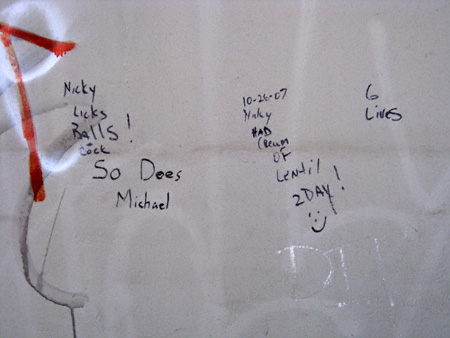 Nicky
Licks
Balls!
+
Cock
So Does
Michael
10-26-07
Nicky
HAD
Cream
OF
Lentil
2DAY!
6
Lives